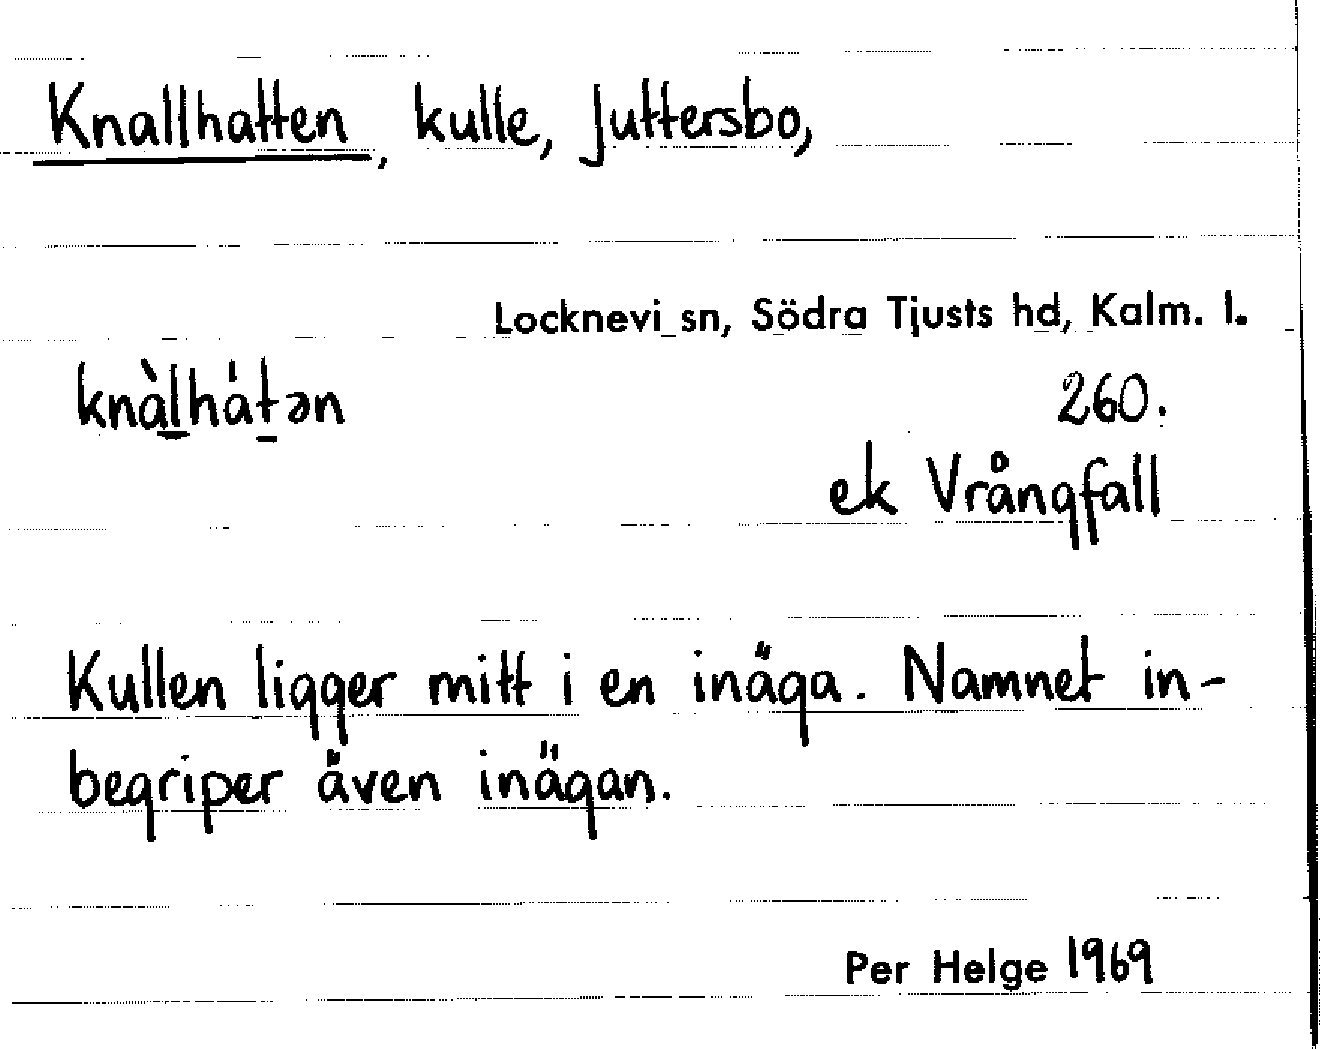 Knallhatten, kulle, Juttersbo,
Locknevi sn, Södra Tjusts hd, Kalm. l.
knàl̲hát̲ən 260.
ek Vrångfall
Kullen ligger mitt i en inäga. Namnet in-
begriper även inägan.
Per Helge 1969